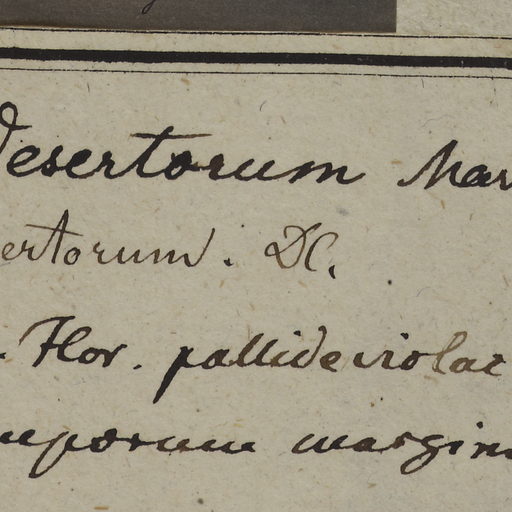 desertorum Mar
ertorum. DC.
. Flor. pallide violac
mporum margin